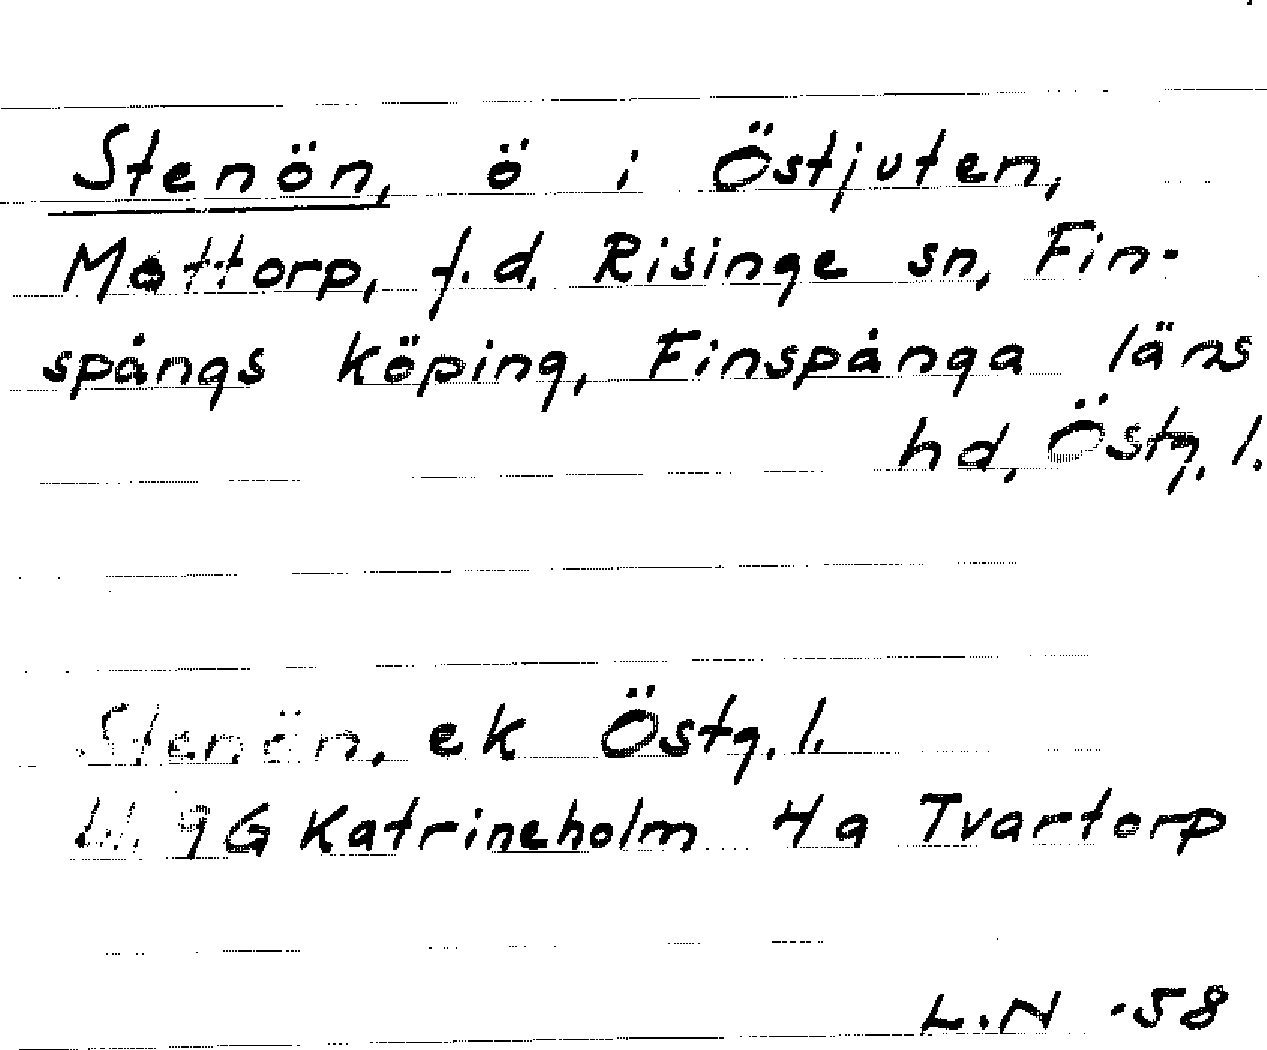 Stenön, ö i Östjuten,
Mottorp, f.d. Risinge sn, Fin-
spångs köping, Finspånga läns
hd, Östg. l.
Stenön, ek Östg. l.
bl. 9G Katrineholm 4a Tvartorp
L.N -58